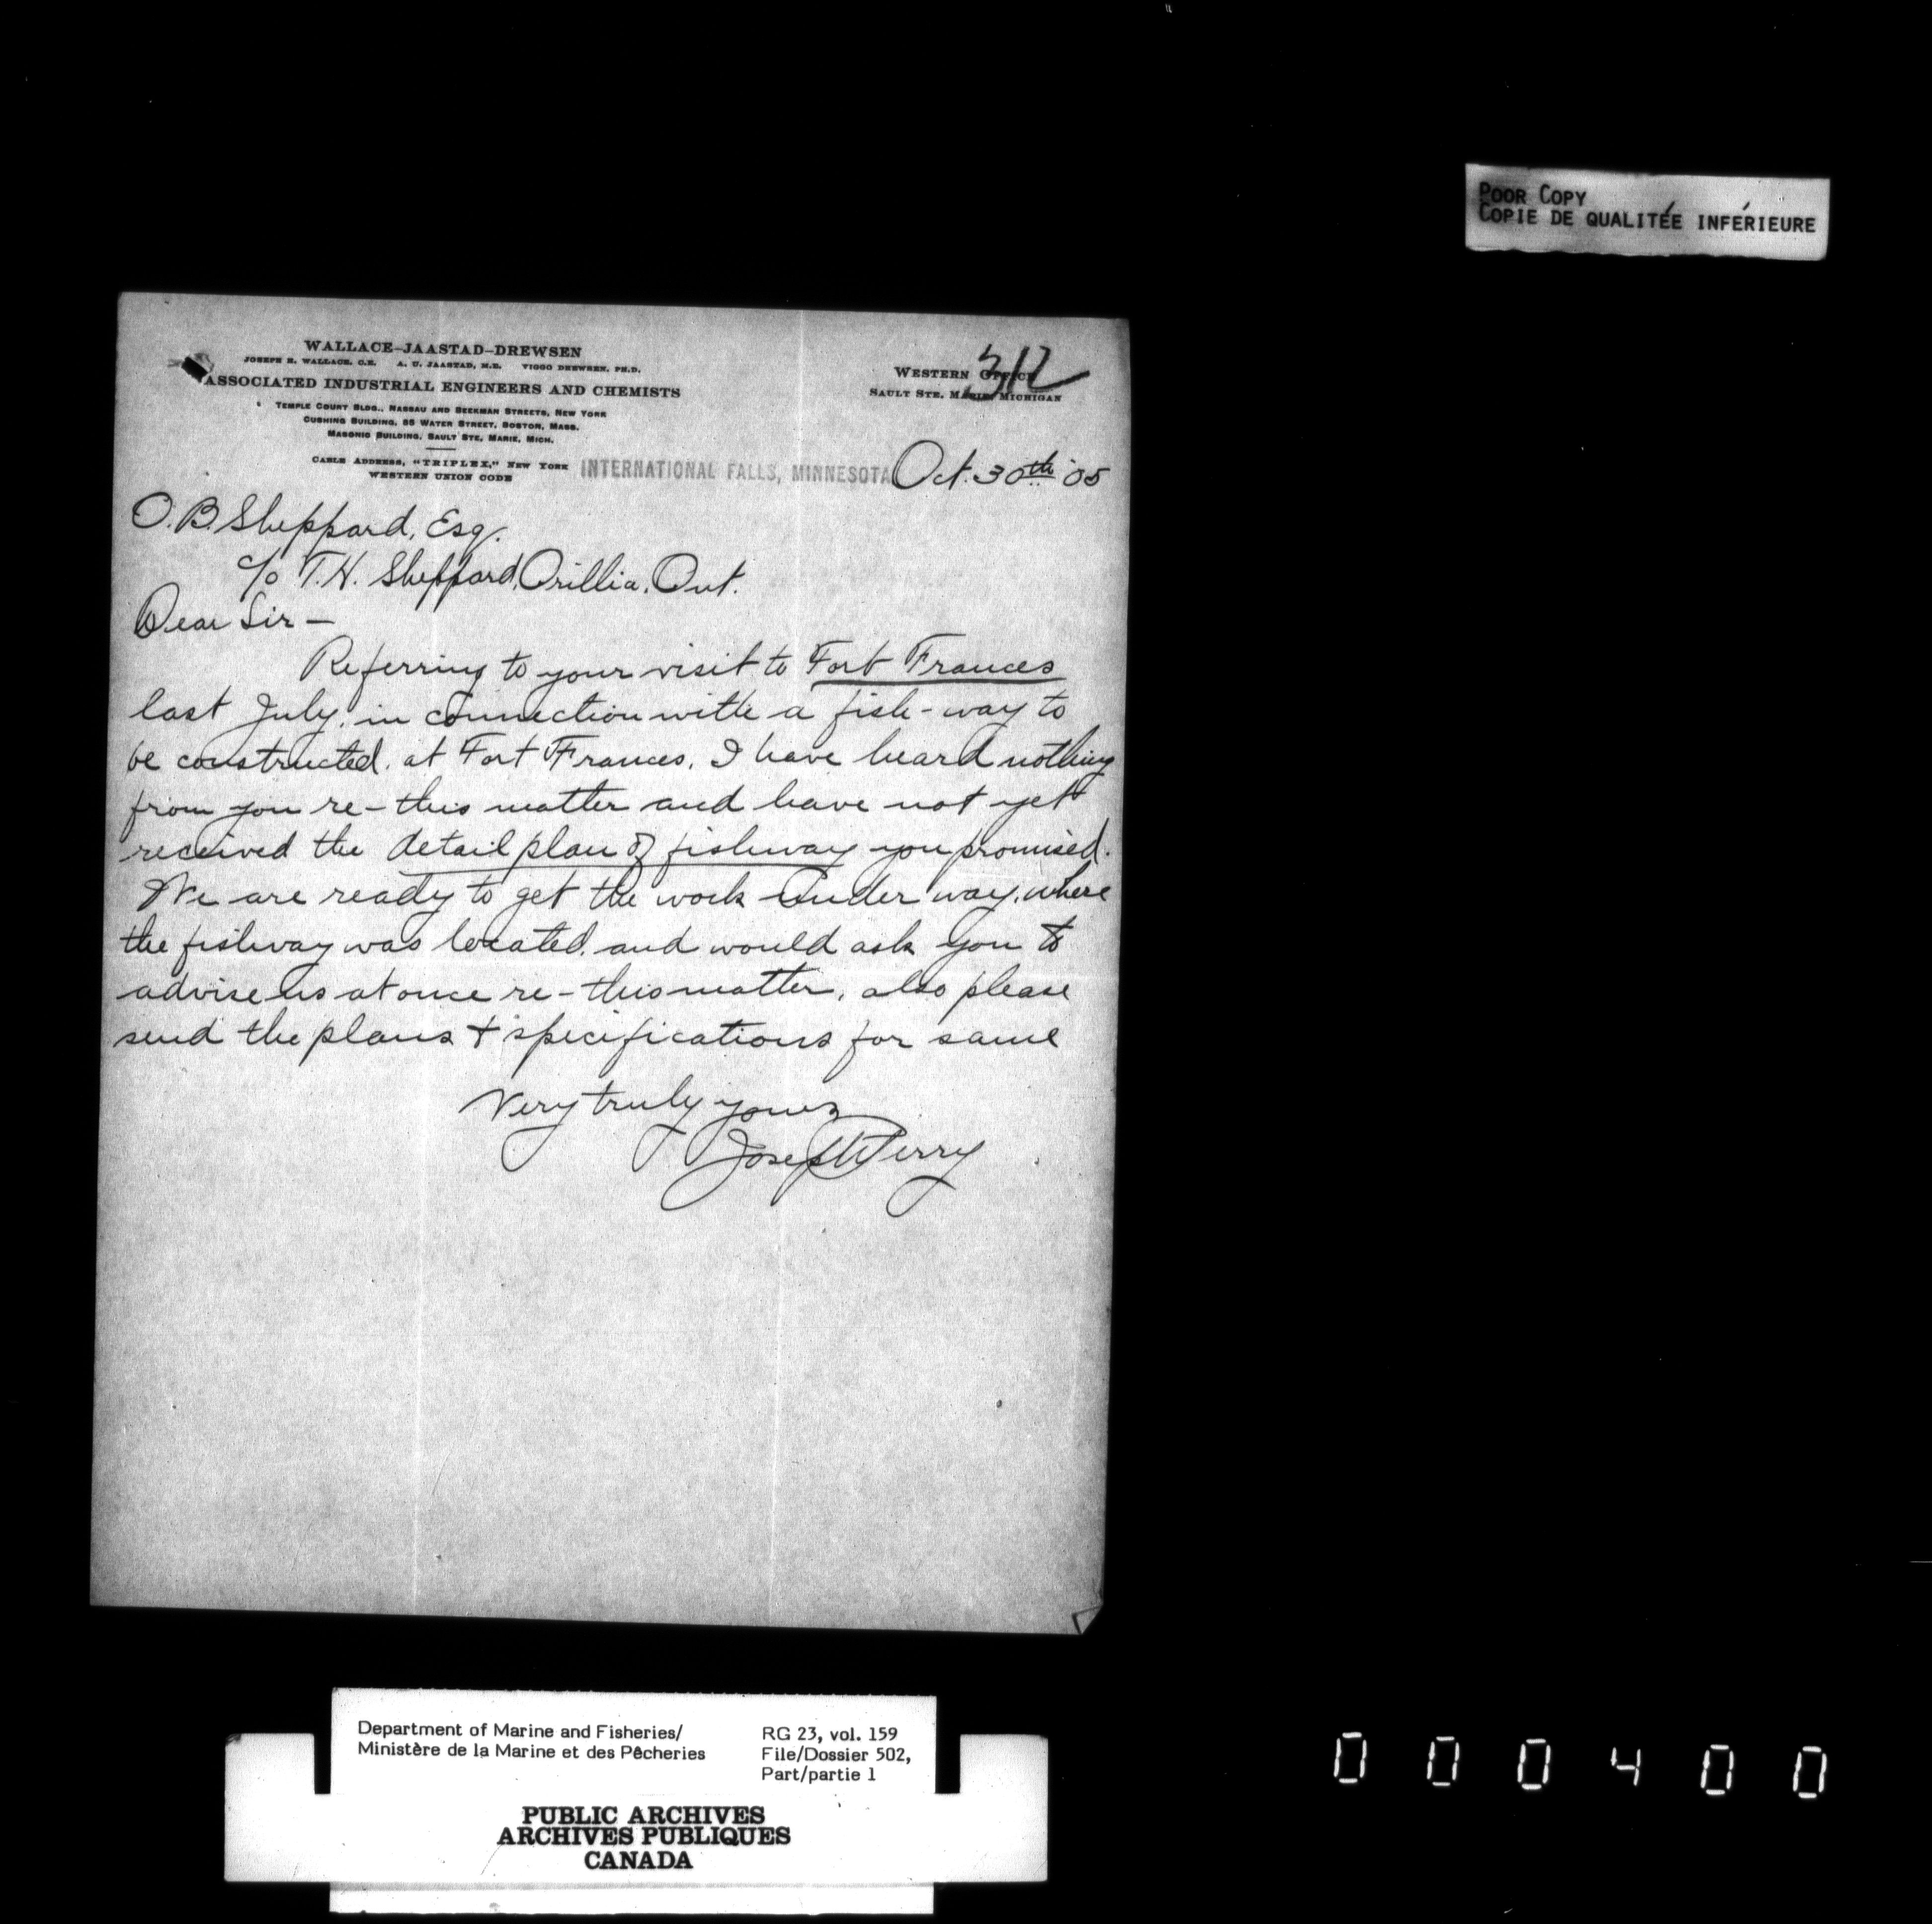 POOR COPY
COPIE DE QUALITÉE INFÉRIEURE
WALLACE–JAASTAD–DREWSEN
JOSEPH H. WALLACE, C.E. A. U. JAASTAD, M.E. VIGGO DREWSEN, PH.D.
ASSOCIATED INDUSTRIAL ENGINEERS AND CHEMISTS
TEMPLE COURT BLDG., NASSAU AND BEEKMAN STREETS, NEW YORK
CUSHING BUILDING, 85 WATER STREET, BOSTON, MASS.
MASONIC BUILDING, SAULT STE. MARIE, MICH.
CABLE ADDRESS, "TRIPLEX," NEW YORK
WESTERN UNION CODE
WESTERN OFFICE
312
SAULT STE. MARIE, MICHIGAN
INTERNATIONAL FALLS, MINNESOTA Oct. 30th '05
O. B. Sheppard, Esq.
c/o T. H. Sheppard, Orillia, Ont.
Dear Sir —
Referring to your visit to Fort Frances
last July, in connection with a fish-way to
be constructed, at Fort Frances, I have heard nothing
from you re-this matter and have not yet
received the detail plan of fishway you promised.
We are ready to get the work under way, where
the fishway was located, and would ask you to
advise us at once re-this matter, also please
send the plans + specifications for same
Very truly yours
Joseph Perry
Department of Marine and Fisheries/
Ministère de la Marine et des Pêcheries
RG 23, vol. 159
File/Dossier 502,
Part/partie 1
PUBLIC ARCHIVES
ARCHIVES PUBLIQUES
CANADA
000400